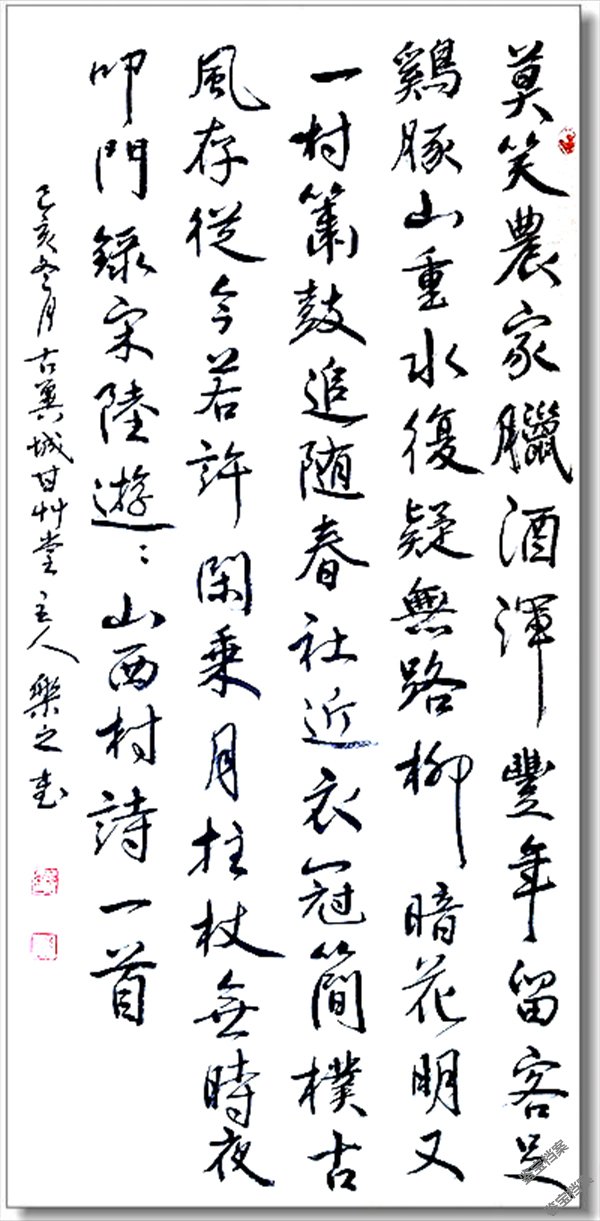 莫笑農家臘酒渾豐年留客足
鷄豚山重水復疑無路柳暗花明又
一村簫鼓追随春社近衣冠簡樸古
風存從今若許閑乗月拄杖無時夜
叩門錄宋陸遊:山西村詩一首
己亥冬月古冀城甘艸堂主人樂之書
鉴宝档案
鉴宝档案